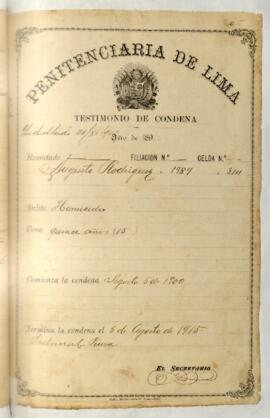 PENITENCIARIA DE LIMA
TESTIMONIO DE CONDENA
Año de 189
Rematado FILIACION N.º CELDA N.º
Augusto Rodriguez 1989 311
Delito Homicidio
Pena quince años (15)
Comienza la condena Agosto 5 de 1900
Termina la condena el 5 de Agosto de 1915
Tribunal Piura
EL SECRETARIO